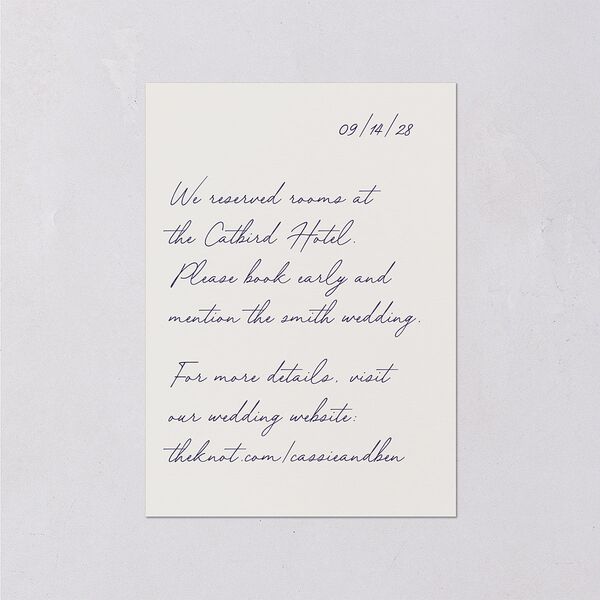 09/14/28
We reserved rooms at
the Catbird Hotel.
Please book early and
mention the smith wedding.
For more details, visit
our wedding website:
theknot.com/cassieandben